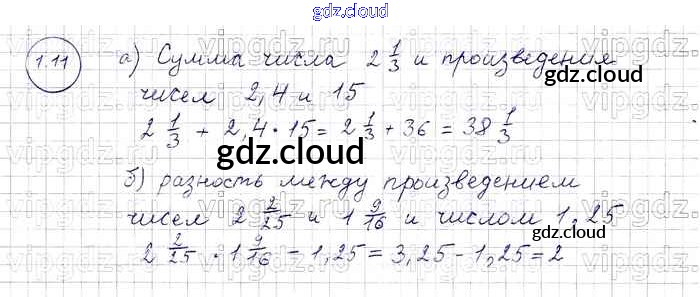 gdz.cloud
1.11
а) Сумма числа 2 1/3 и произведения
чисел 2,4 и 15
2 1/3 + 2,4 · 15 = 2 1/3 + 36 = 38 1/3
б) разность между произведением
чисел 2 2/25 и 1 9/16 и числом 1,25
2 2/25 · 1 9/16 - 1,25 = 3,25 - 1,25 = 2
gdz.cloud
gdz.cloud
gdz.cloud
gdz.cloud